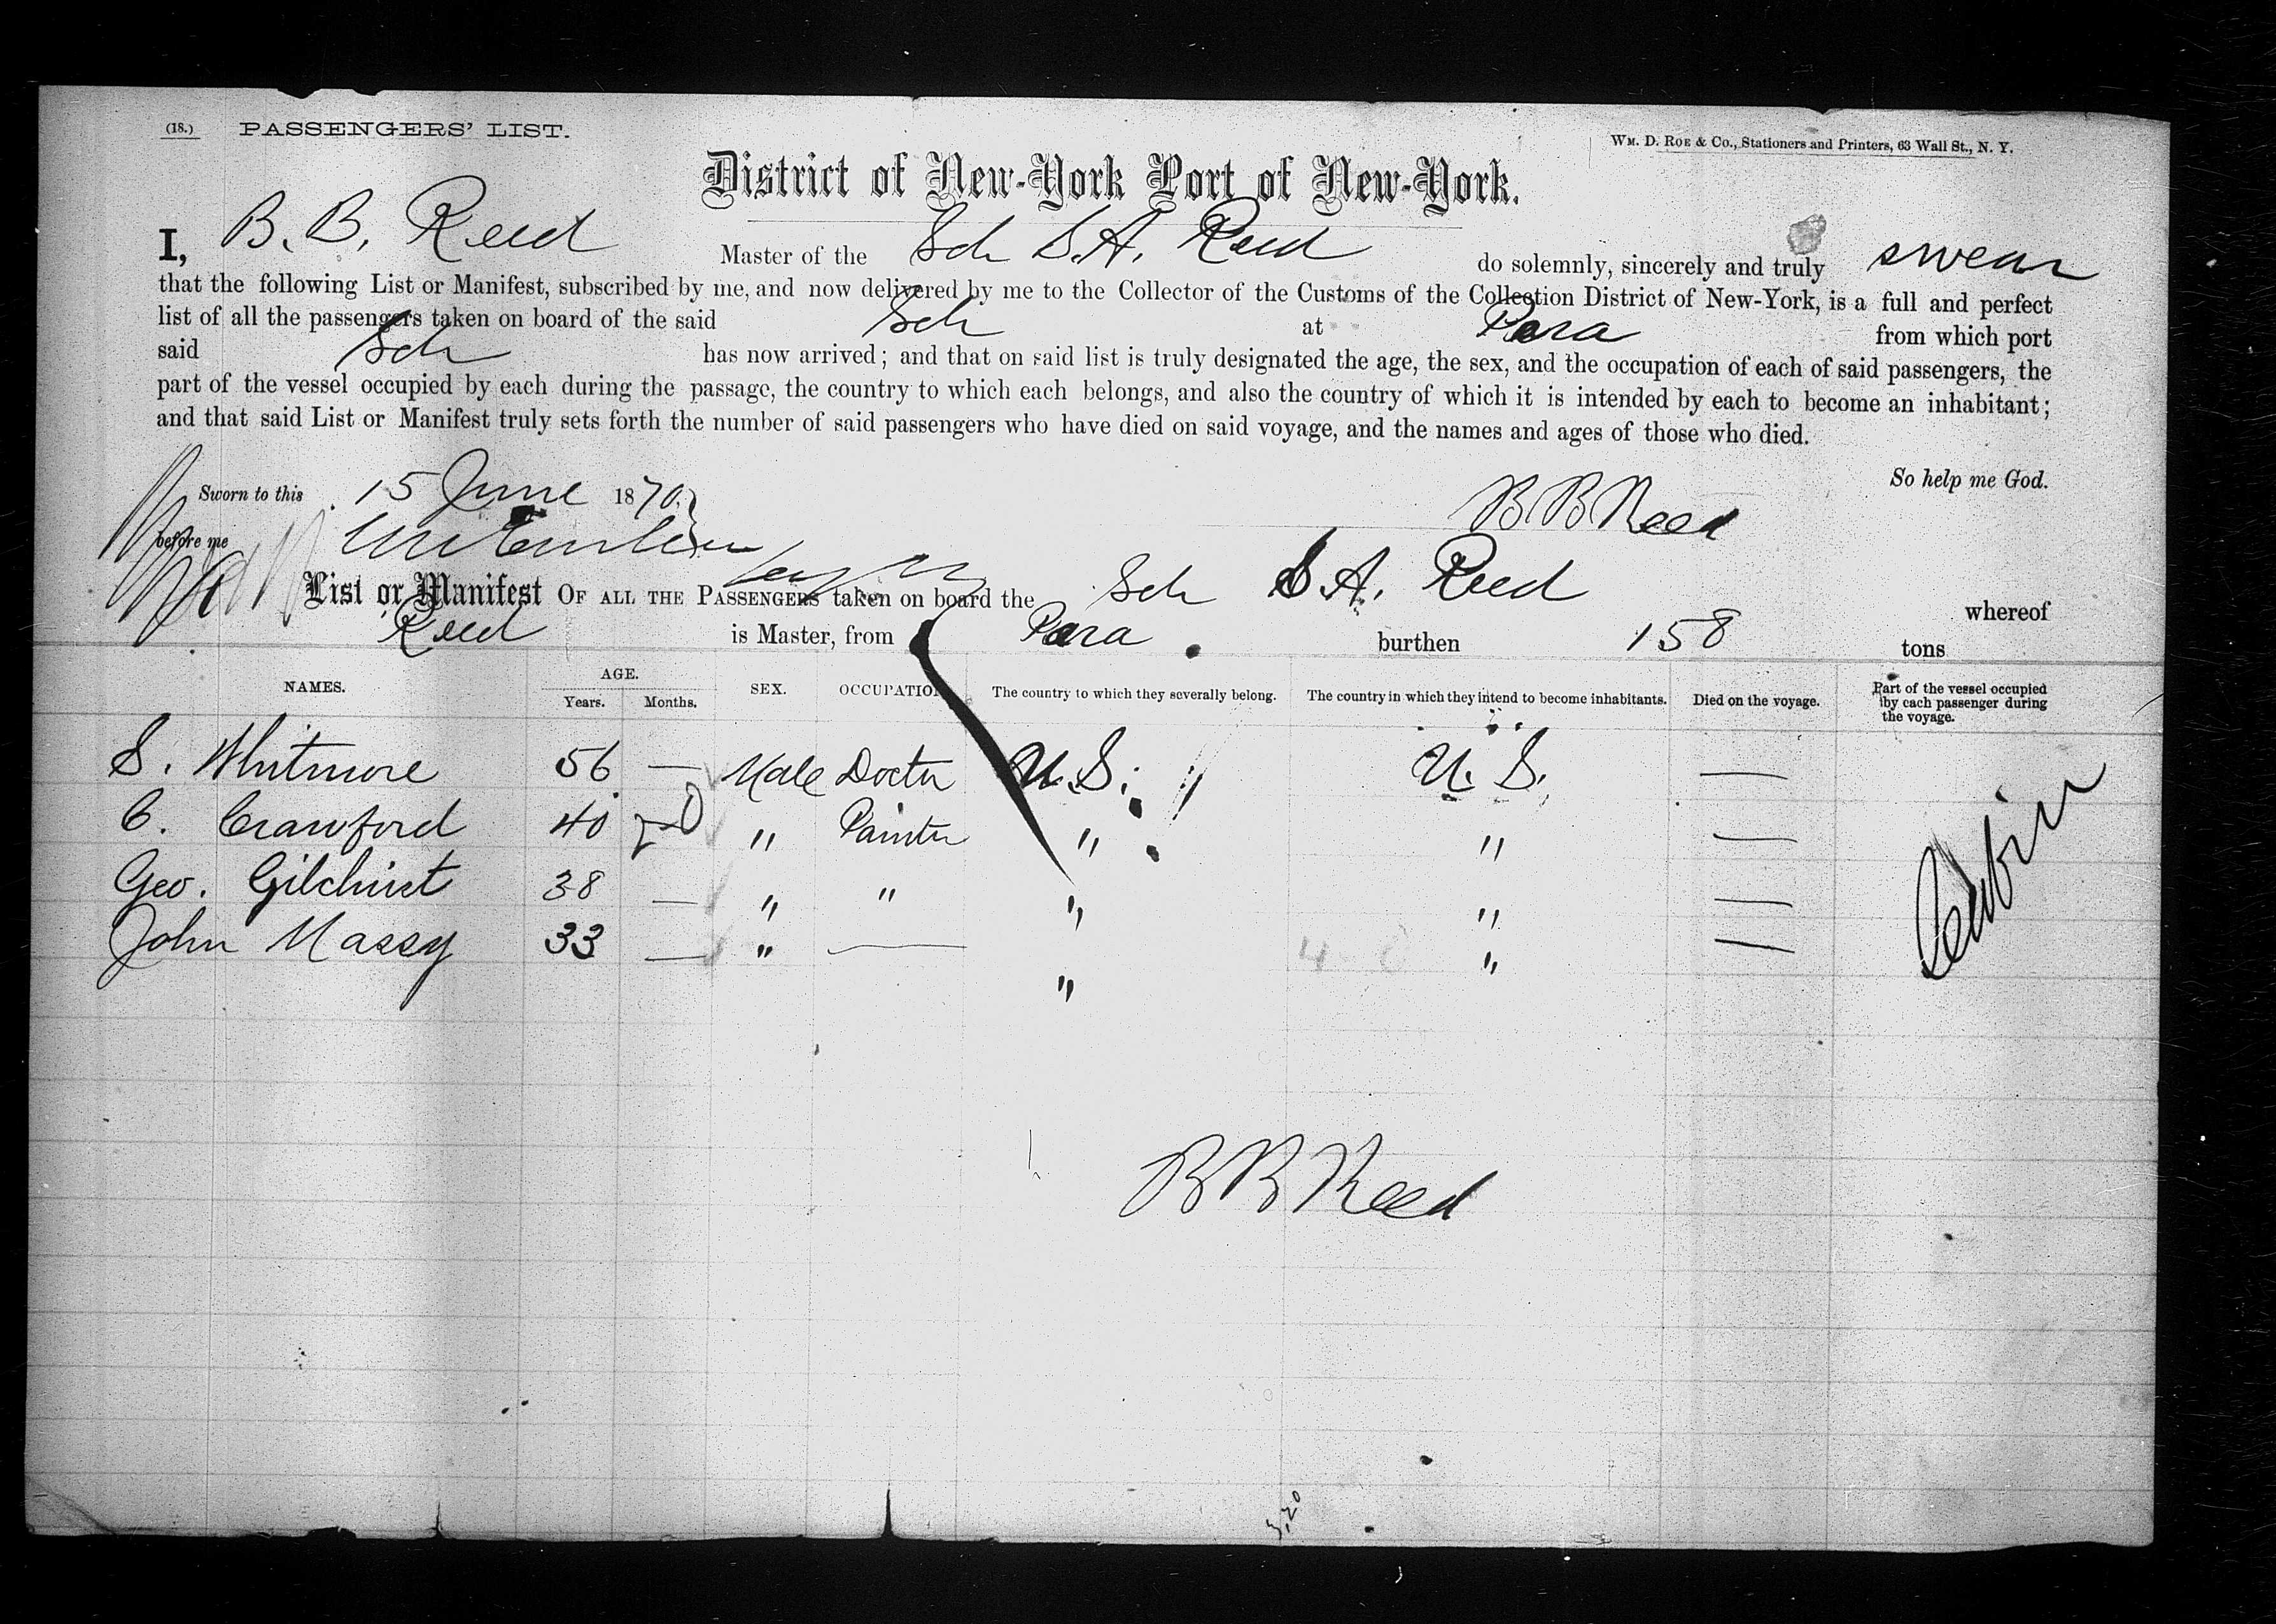 (18.) PASSENGERS' LIST.
WM. D. ROE & CO., Stationers and Printers, 63 Wall St., N. Y.
District of New-York Port of New-York.
I, B. B. Reed Master of the Sch S. A. Reed do solemnly, sincerely and truly swear
that the following List or Manifest, subscribed by me, and now delivered by me to the Collector of the Customs of the Collection District of New-York, is a full and perfect
list of all the passengers taken on board of the said Sch at Para from which port
said Sch has now arrived; and that on said list is truly designated the age, the sex, and the occupation of each of said passengers, the
part of the vessel occupied by each during the passage, the country to which each belongs, and also the country of which it is intended by each to become an inhabitant;
and that said List or Manifest truly sets forth the number of said passengers who have died on said voyage, and the names and ages of those who died.
So help me God.
Sworn to this 15 June 1870
B B Reed
before me
List or Manifest OF ALL THE PASSENGERS taken on board the Sch S. A. Reed whereof
Reed is Master, from Para burthen 158 tons
NAMES. AGE. Years. Months. SEX. OCCUPATION The country to which they severally belong. The country in which they intend to become inhabitants. Died on the voyage. Part of the vessel occupied by each passenger during the voyage.
S. Whitmore 56 — Male Doctor U. S. U. S. —
C. Crawford 40 " Painter " " —
Geo. Gilchrist 38 — " " " " —
John Massy 33 — " — " " —
Cabin
B B Reed